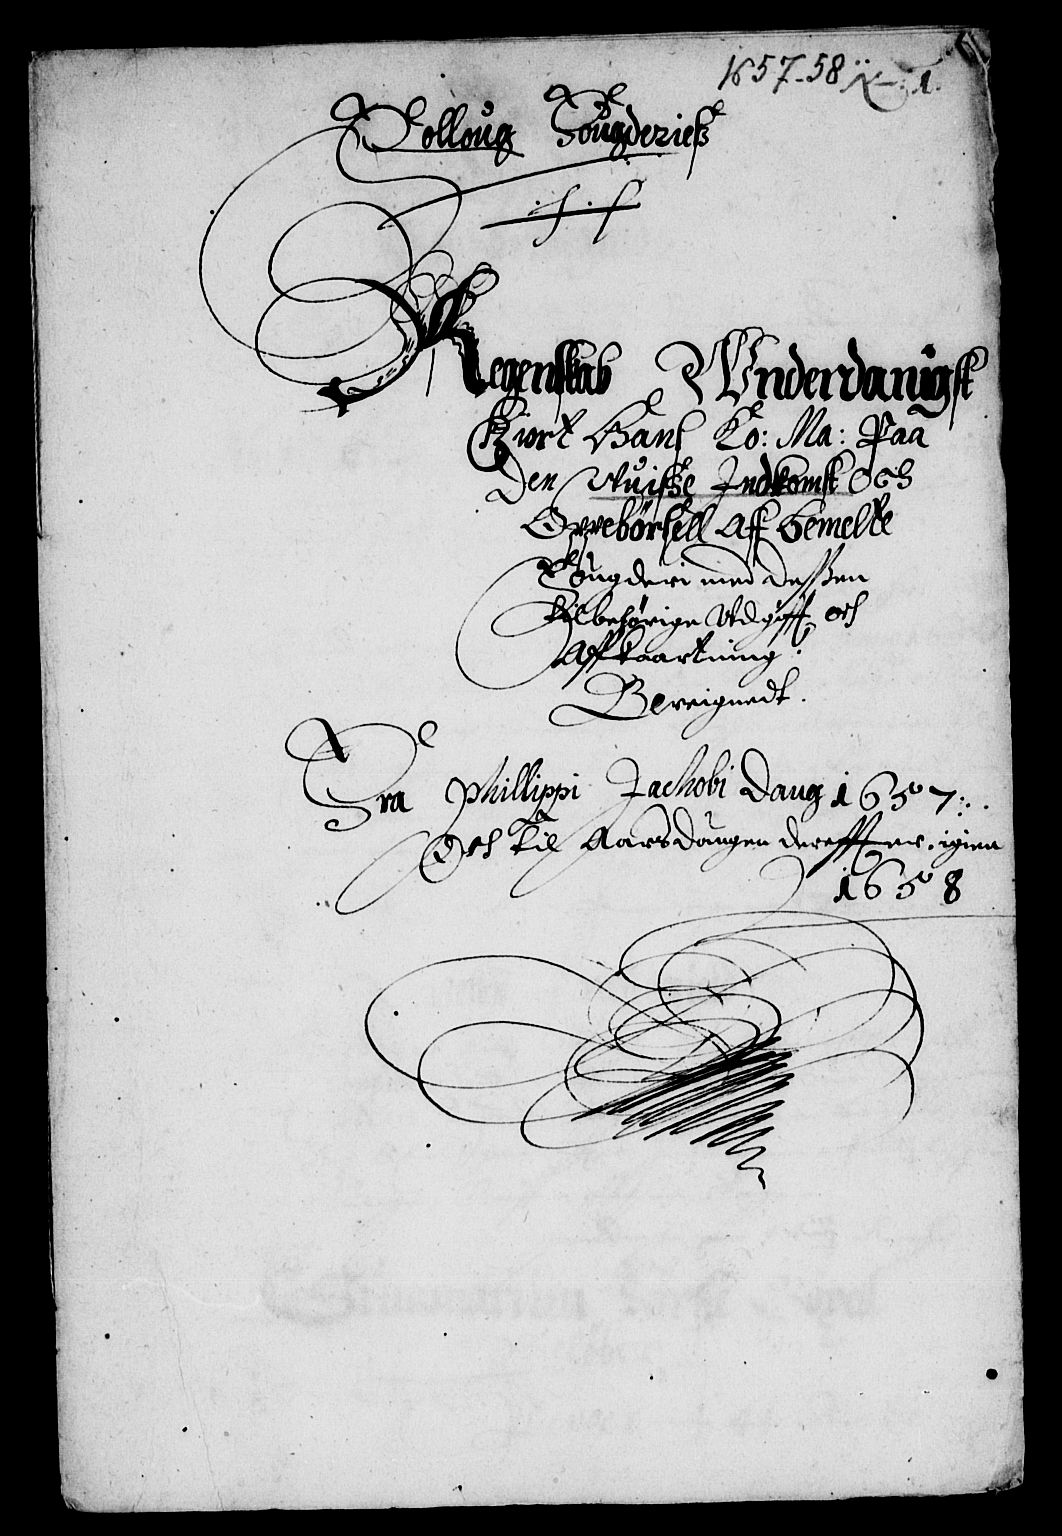 1657-58
Solloug Fougderiets
Regenskab Vnderdanigst
Giort Hans Ko: Ma: Paa
Den Wuisze Indkomst Och
Oppebörsell Aff bemelte
Fougderi med dessen
tilbehörige Vdgifft och
Affkaartning:
Bereignedt.
Fra Phillippi Jachobi Daug 1657:
Och til Aarsdaugen dereffter igien
1658